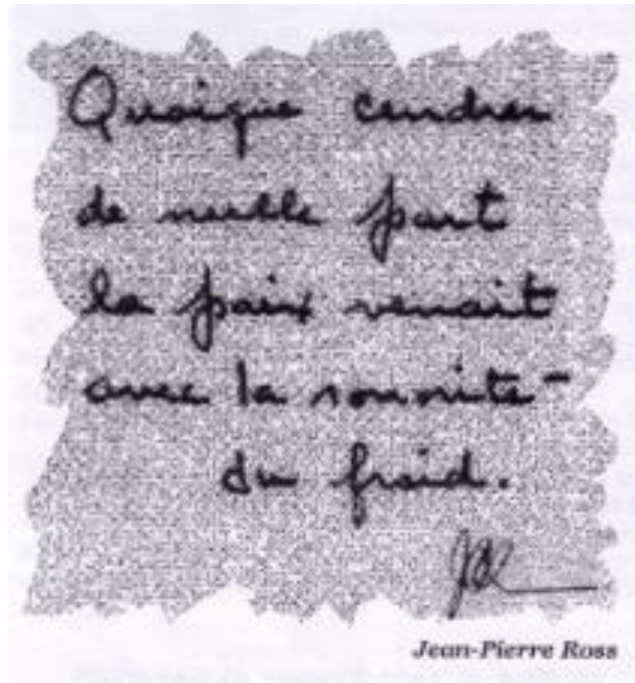 Quoique cendres
de nulle part
la paix venait
avec la sonorité
du froid.
JPR
Jean-Pierre Ross